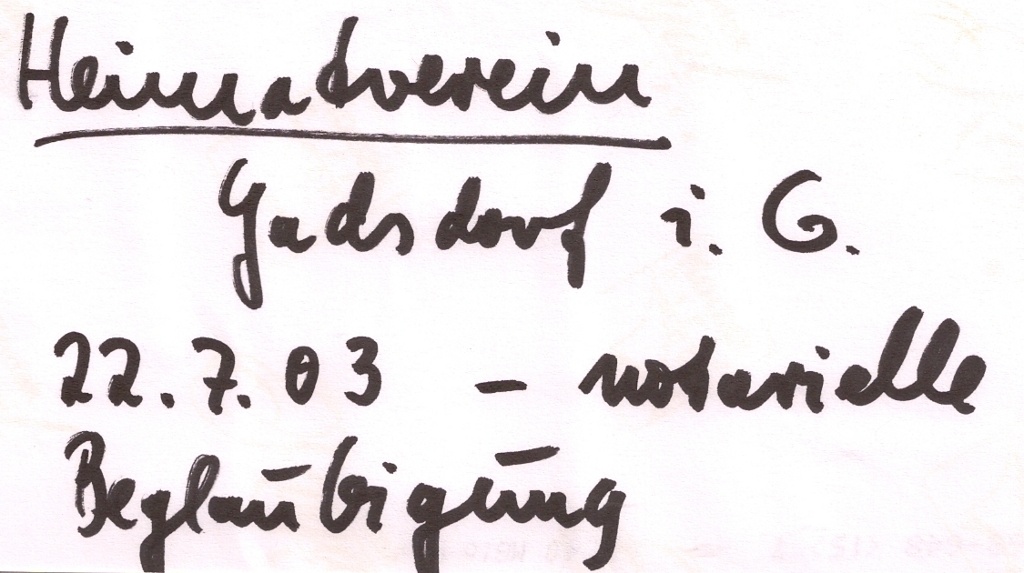 Heimatverein
Gadsdorf i. G.
22.7.03 – notarielle
Beglaubigung